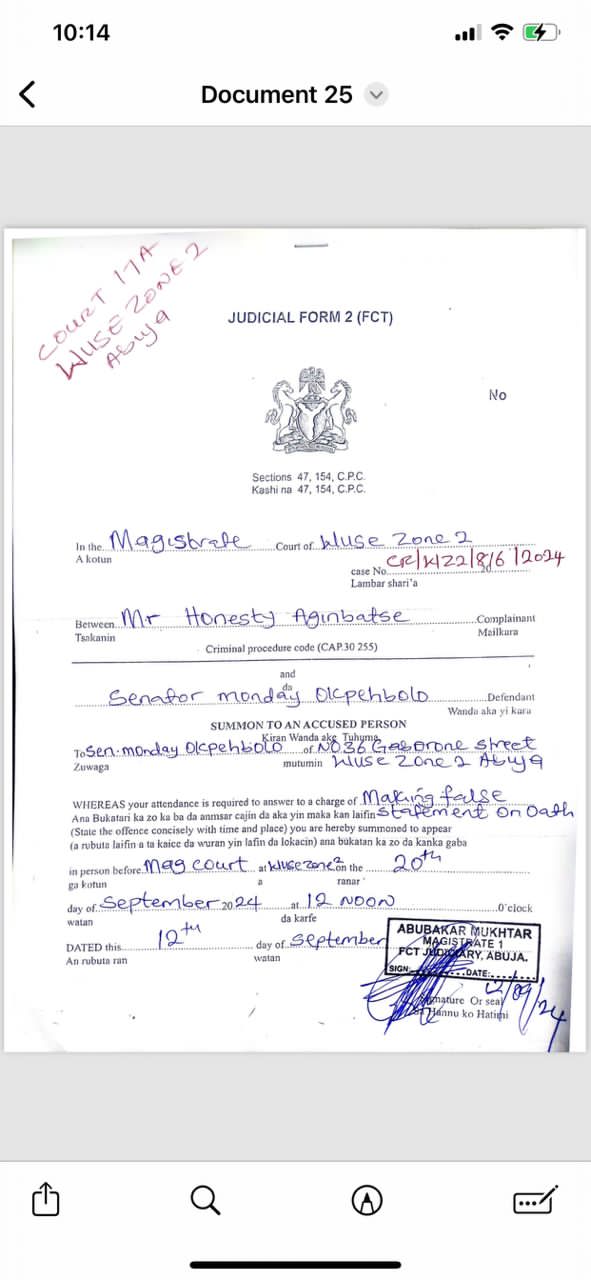 10:14
Document 25
COURT 17A
WUSE ZONE 2
Abuja
JUDICIAL FORM 2 (FCT)
No
Sections 47, 154, C.P.C.
Kashi na 47, 154, C.P.C.
In the Magistrate Court of Wuse Zone 2
A kotun
case No.
Lambar shari'a
Between Mr Honesty Aginbatse Complainant
Tsakanin Maikura
Criminal procedure code (CAP.30 255)
and
da
Senator monday Okpehbolo Defendant
Wanda aka yi kara
SUMMON TO AN ACCUSED PERSON
Kiran Wanda ake Tuhuma
To Sen. monday Okpehbolo of NO 36 Gaborone street
Zuwaga mutumin Wuse Zone 2 Abuja
WHEREAS your attendance is required to answer to a charge of Making false
Ana Bukatari ka zo ka ba da anmsar cajin da aka yin maka kan laifin statement on Oath
(State the offence concisely with time and place) you are hereby summoned to appear
(a rubuta laifin a ta kaice da wuran yin lafin da lokacin) ana bukatan ka zo da kanka gaba
in person before Mag court at Wuse zone 2 on the 20th
ga kotun a ranar
day of September 2024 at 12 NOON O'clock
watan da karfe
DATED this 12th day of September
An rubuta ran watan
ABUBAKAR MUKHTAR
MAGISTRATE 1
FCT JUDICIARY, ABUJA.
SIGN: DATE:
12/09/24
Signature Or seal
Hannu ko Hatimi